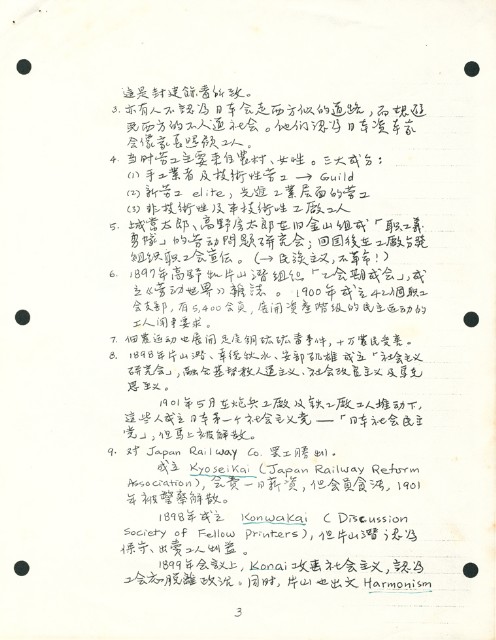 这是封建余毒所致。
3. 亦有人不认为日本会走西方似的道路，而想避免西方的不人道社会。他们认为日本资本家
会像家长照顾工人。
4. 当时劳工主要来自农村、女性。三大成分：
(1) 手工业者及技术性劳工 → Guild
(2) 新劳工 elite，先进工业层面的劳工
(3) 非技术性及半技术性工厂工人
5. 城常太郎、高野房太郎在旧金山组成「职工义
勇队」的劳动问题研究会；回国后在工厂与
组织职工会宣传。(→ 民族主义，不革命！)
6. 1897年高野和片山潜组织「工会期成会」，成
立《劳动世界》杂志。1900年成立42个职工
会支部，有5,400会员，展开资产阶级的民主运动的
工人闹争要求。
7. 佃农运动也展开足尾铜矿事件，+万农民受害。
8. 1898年片山潜、幸德秋水、安部矶雄成立「社会主义
研究会」，融合基督教人道主义、社会改良主义及马克
思主义。
1901年5月在炮兵工厂及铁工厂工人推动下，
这些人成立日本第一个社会主义党——「日本社会民主
党」，但马上被解散。
9. 对 Japan Railway Co. 罢工胜利。
成立 Kyoseikai (Japan Railway Reform
Association)，会费一日薪资，但会员贪污，1901
年被警察解散。
1898年成立 Konwakai ( Discussion
Society of Fellow Printers)，但片山潜认为
保守、出卖工人利益。
1899年会议上，Konai 攻击社会主义，认为
工会应脱离政治。同时，片山也出文 Harmonism
3